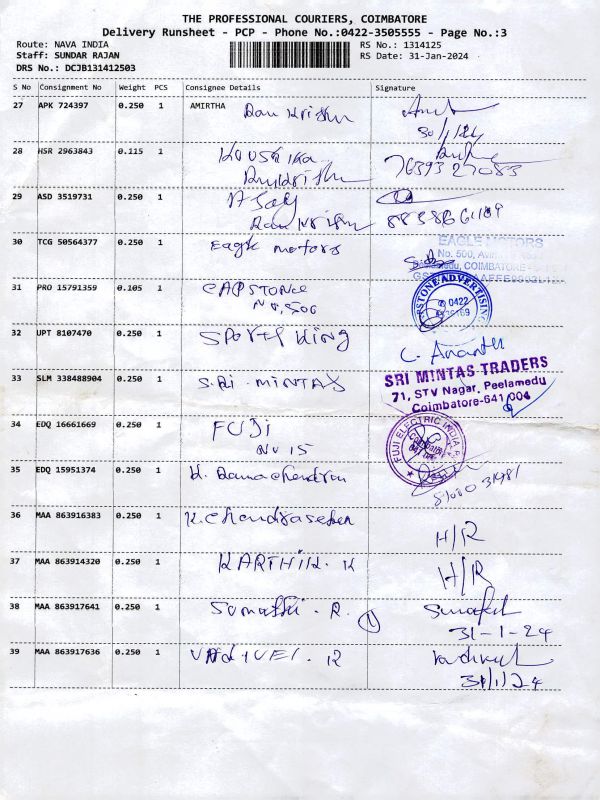 THE PROFESSIONAL COURIERS, COIMBATORE
Delivery Runsheet - PCP - Phone No.:0422-3505555 - Page No.:3
Route: NAVA INDIA RS No.: 1314125
Staff: SUNDAR RAJAN RS Date: 31-Jan-2024
DRS No.: DCJB131412503
S No Consignment No Weight PCS Consignee Details Signature
27 APK 724397 0.250 1 AMIRTHA
28 HSR 2963843 0.115 1 KOUSHIKA
29 ASD 3519731 0.250 1
30 TCG 50564377 0.250 1 Eagle motors EAGLE MOTORS
No. 500,
COIMBATORE
31 PRO 15791359 0.105 1 CAPSTONE
0422
32 UPT 8107470 0.250 1 SPORTS King C. Ananth
33 SLM 338488904 0.250 1 SRI. MINTAS SRI MINTAS TRADERS
71, STV Nagar, Peelamedu
Coimbatore-641 004
34 EDQ 16661669 0.250 1 FUJI FUJI ELECTRIC INDIA
NV 15
35 EDQ 15951374 0.250 1 K. Ramachandran
36 MAA 863916383 0.250 1 K. Chandrasekar H/R
37 MAA 863914320 0.250 1 KARTHIK. K H/R
38 MAA 863917641 0.250 1 Sumathi . R. 1
31-1-24
39 MAA 863917636 0.250 1 VADIVEL . R
31/1/24